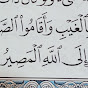 بِٱلْغَيْبِ وَأَقَامُوا۟ ٱلصَّ
إِلَى ٱللَّهِ ٱلْمَصِيرُ